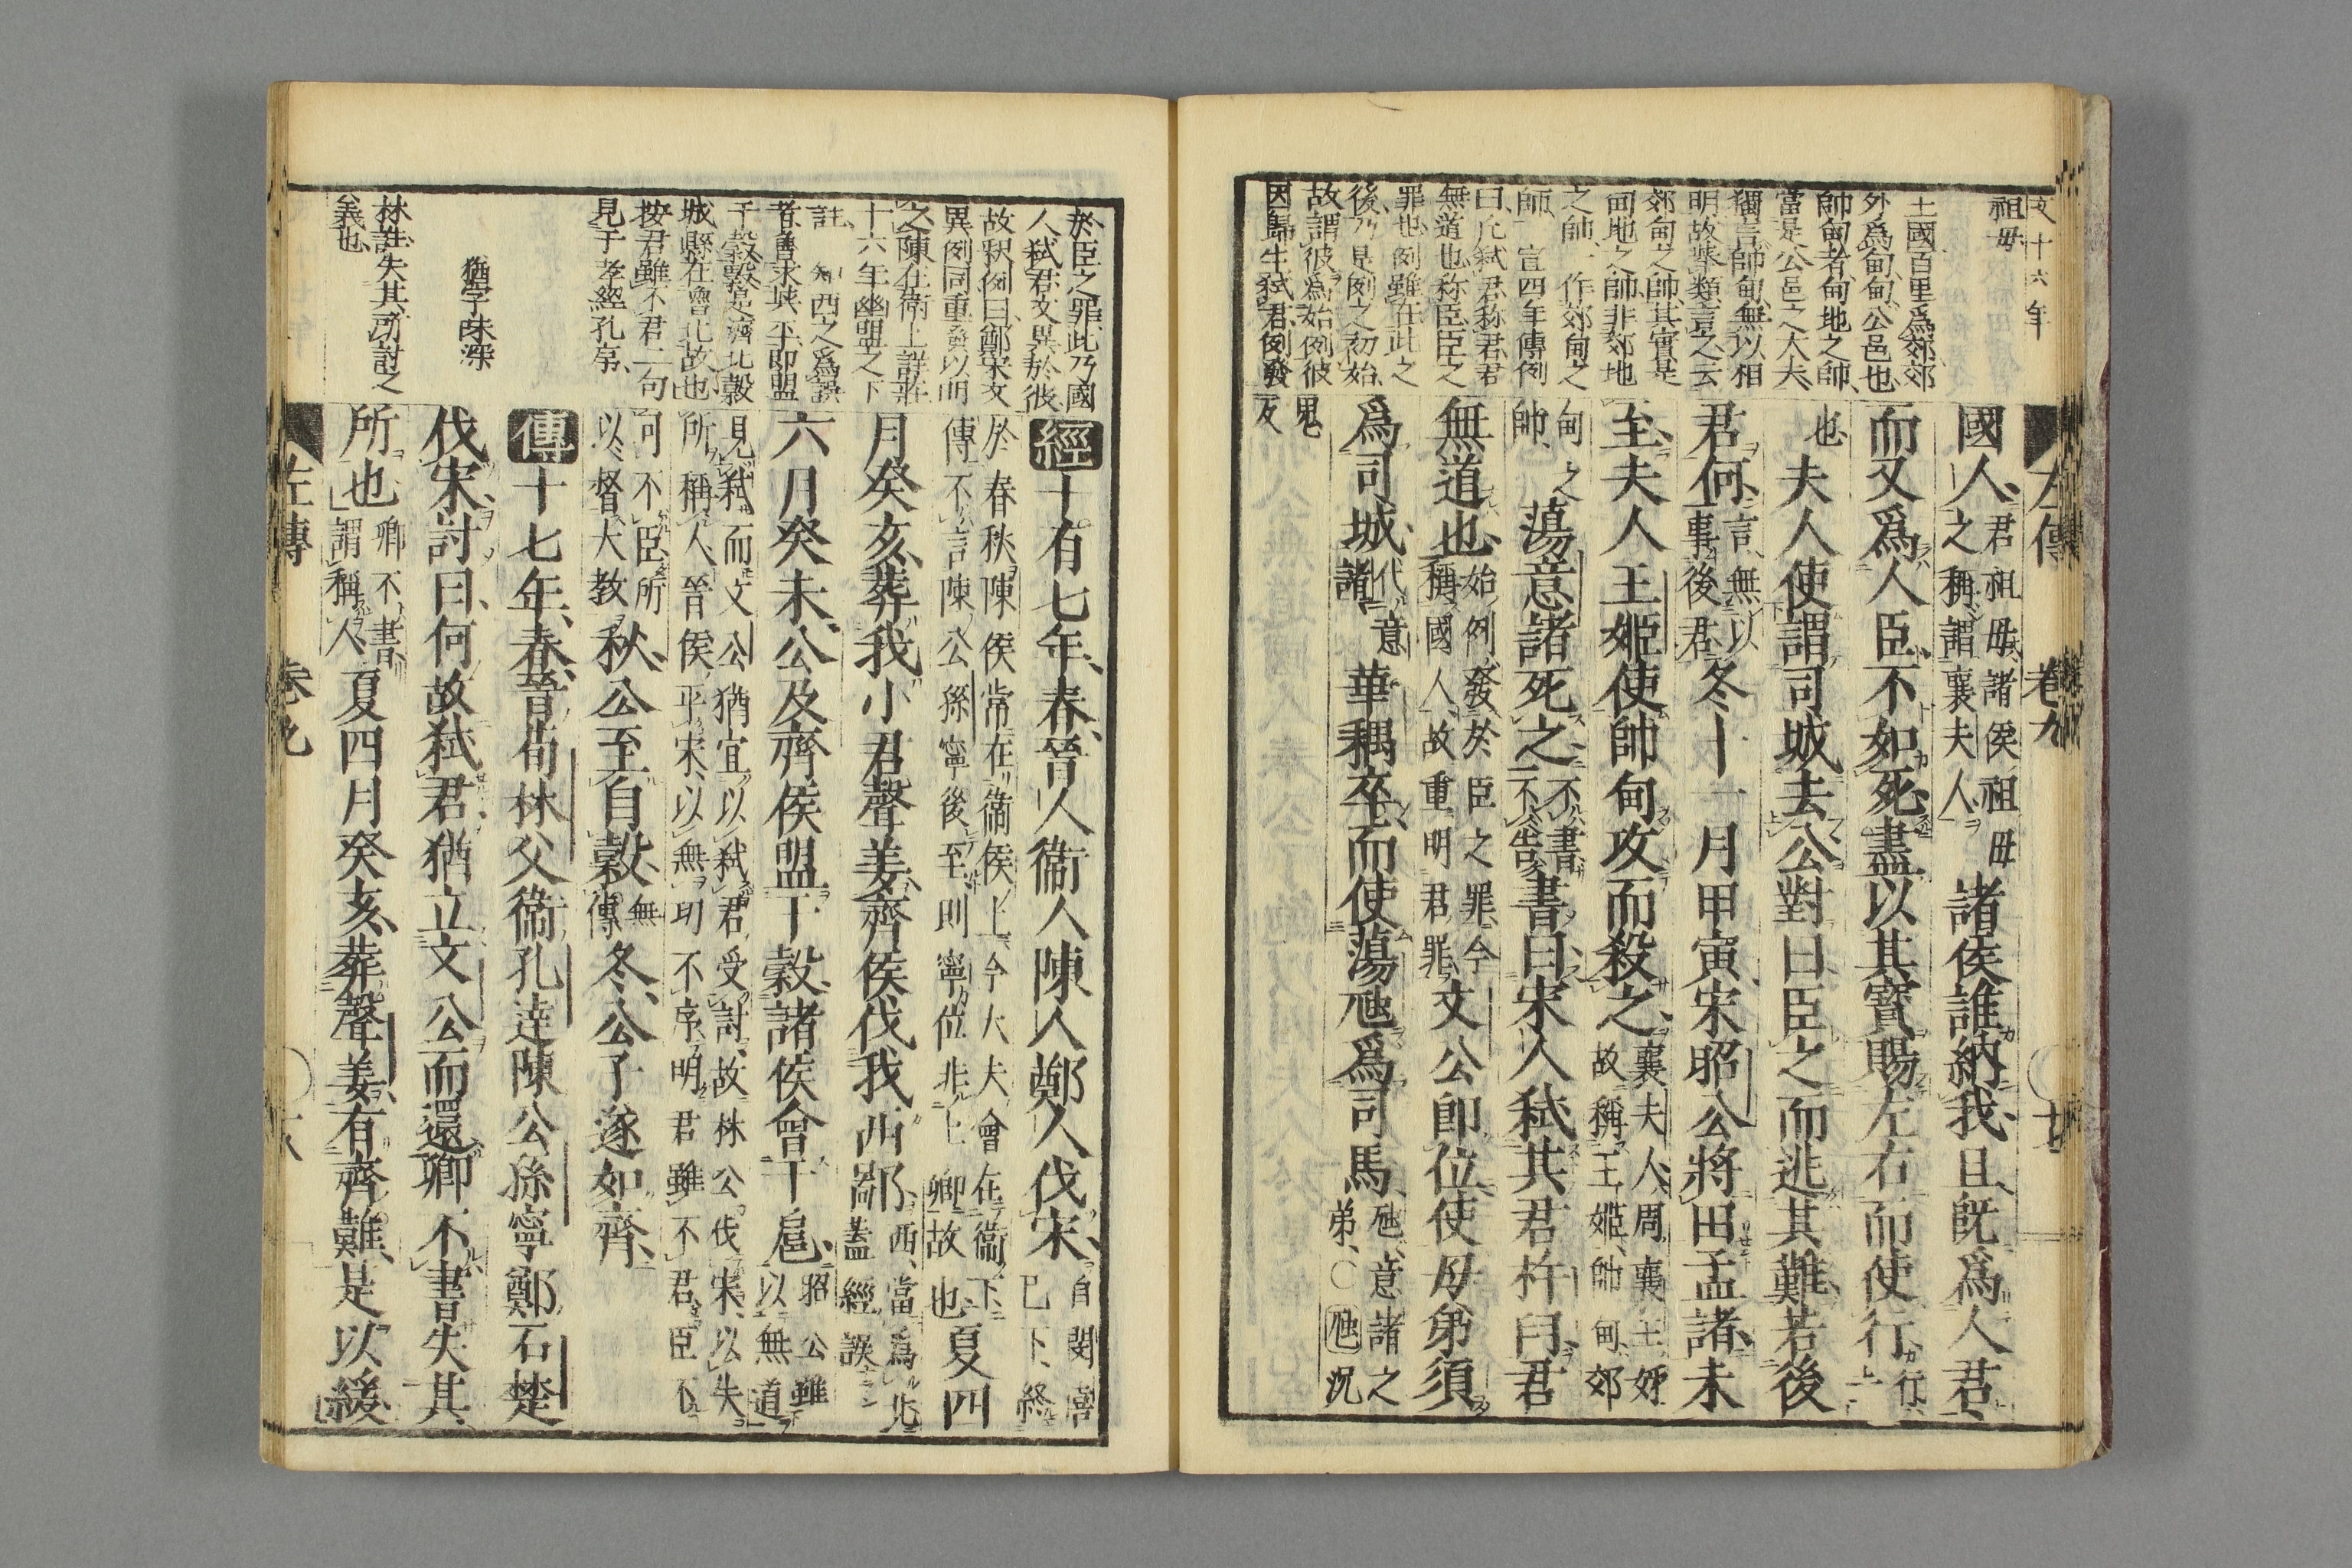 文十六年
祖母
王國百里爲郊郊
外爲甸甸公邑也
帥甸者甸地之帥
當是公邑之大夫
獨言帥甸無以相
明故挙類言之云
郊甸之帥其實是
甸地之帥非郊地
之帥一作郊甸之
師 宣四年傳例
曰凡弑君称君君
無道也称臣臣之
罪也例雖在此之
後乃是例之初始
故謂彼爲始例彼
因歸生弑君例發
左傳 卷九
國人君祖母諸侯祖母
之稱謂襄夫人諸侯誰納我且既爲人君
而又爲人臣不如死盡以其寳賜左右而使行行
也夫人使謂司城去公對曰臣之而逃其難若後
君何言無以
事後君冬十一月甲寅宋昭公將田孟諸未
至夫人王姬使帥甸攻而殺之襄夫人周襄王姊
故稱王姬帥甸郊
甸之
帥蕩意諸死之不書
不告書曰宋人弑其君杵臼君
無道也始例發於臣之罪今
稱國人故重明君罪文公即位使母弟須
爲司城代意
諸華耦卒而使蕩虺爲司馬虺意諸之
弟○虺況
鬼
反
於臣之罪此乃國
人弑君文異於彼
故釈例曰鄭宋文
異例同重發以明
之陳在衛上詳莊
十六年幽盟之下
註 西之爲誤
者魯求挾平即盟
于穀穀是濟北穀
城縣在魯北故也
按君雖不君二句
見于孝經孔序
猶字味深
林註失其所討之
義也
經十有七年春晉人衞人陳人鄭人伐宋自閔僖
已下終
於春秋陳侯常在衞侯上今大夫會在衞下
傳不言陳公孫寧後至則寧位非上卿故也夏四
月癸亥葬我小君聲姜齊侯伐我西鄙西當爲北
蓋經誤
六月癸未公及齊侯盟于穀諸侯會于扈昭公雖
以無道
見弑而文公猶宜以弑君受討故林公伐宋以失
所稱人晉侯平宋以無功不序明君雖不君臣不
可不臣所
以督大教秋公至自穀無
傳冬公子遂如齊
傳十七年春晉荀林父衞孔達陳公孫寧鄭石楚
伐宋討曰何故弑君猶立文公而還卿不書失其
所也卿不書
謂稱人夏四月癸亥葬聲姜有齊難是以緩
左傳 卷九